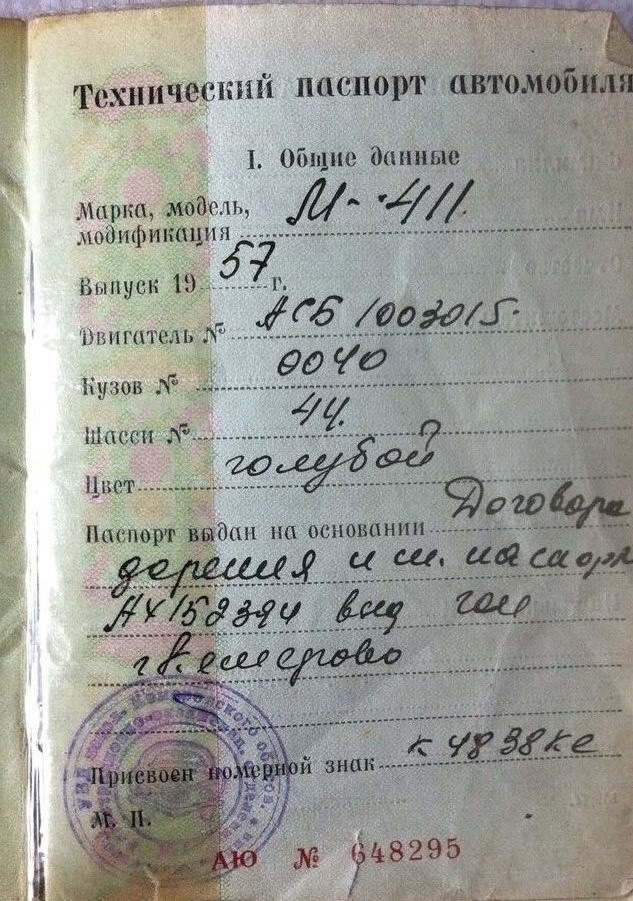 Технический паспорт автомобиля
I. Общие данные
Марка, модель, модификация М-411.
Выпуск 19 57 г.
Двигатель № АСБ 1003015.
Кузов № 0040
Шасси № 44.
Цвет голубой
Паспорт выдан на основании Договора
дарения и т. паспорт
АХ152394 выд ГАИ
г Кемерово
Присвоен номерной знак к 4838 ке
М. П.
АЮ № 648295